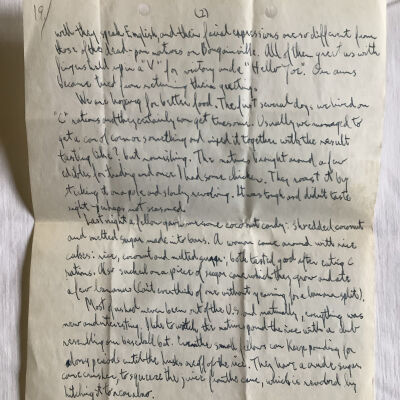 19/ (2)
well they speak English, and their facial expressions are so different from
those of the dead-pan natives on Bougainville. All of them greet us with
fingers held up in a "V" for victory and a "Hello Joe". Our arms
became tired from returning these greetings.
We are hoping for better food. The first several days we lived on
"C" rations and they certainly can get tiresome. Usually we managed to
get a can of corn or something and mixed it together with the result
tasting like? but nourishing. The natives brought around a few
chickens for trading and once I had some chicken. They roast it by
sticking it on a pole and slowly revolving. It was tough and didn't taste
right - perhaps not seasoned.
Last night a fellow gave me some coconut candy: shredded coconut
and melted sugar made into bars. A woman came around with rice
cakes: rice, coconut and melted sugar; both tasted good after eating C
rations. Also sucked on a piece of sugar cane which they grow and ate
a few bananas (Can't even think of one without yearning for a banana split).
Most of us had never been out of the U.S. and naturally, everything was
new and interesting. I like to watch the natives pound the rice with a club
resembling our baseball bat. Even the small fellows can keep pounding for
long periods until the husks are off of the rice. They have a crude sugar
cane crusher, to squeeze the juice from the cane, which is revolved by
hitching it to a carabao.